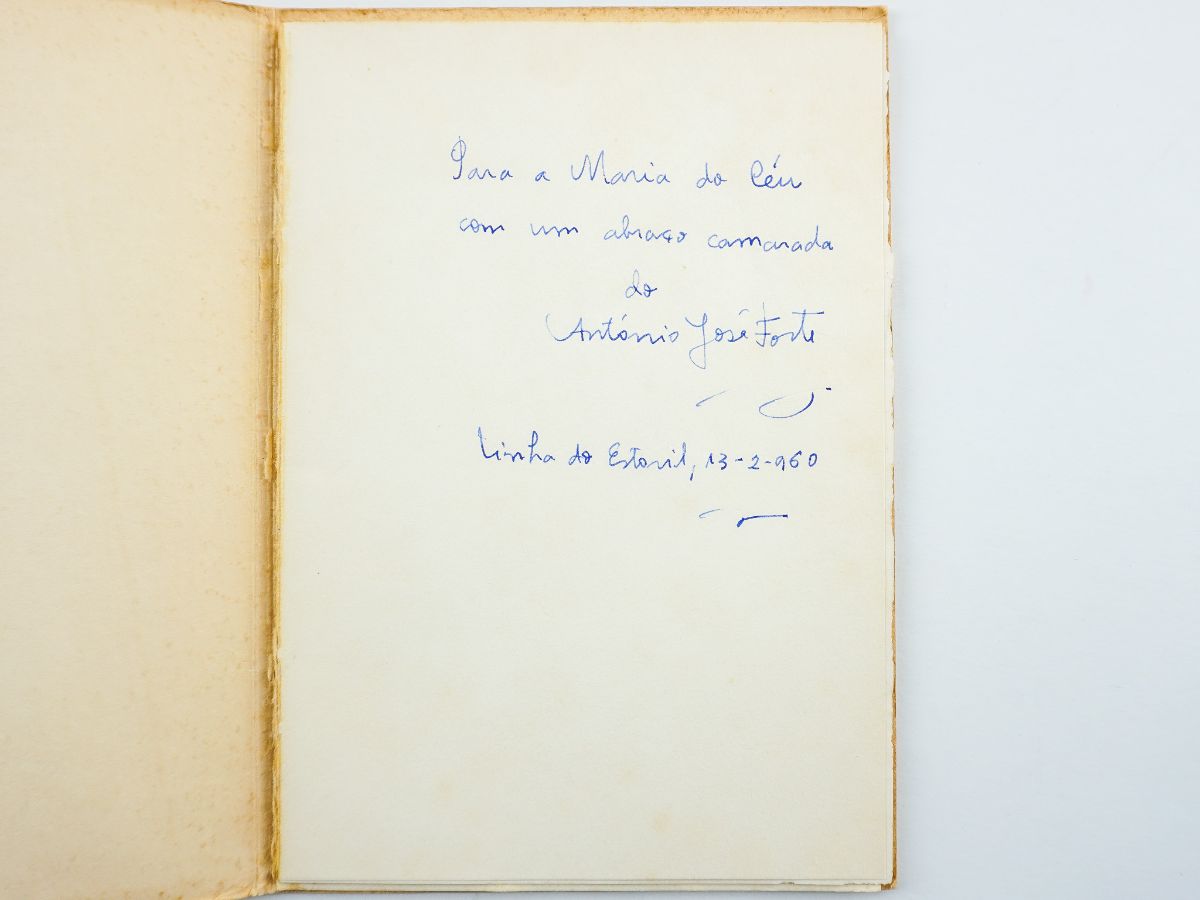 Para a Maria do Céu
com um abraço camarada
do
António José Forte
Linha do Estoril, 13-2-960